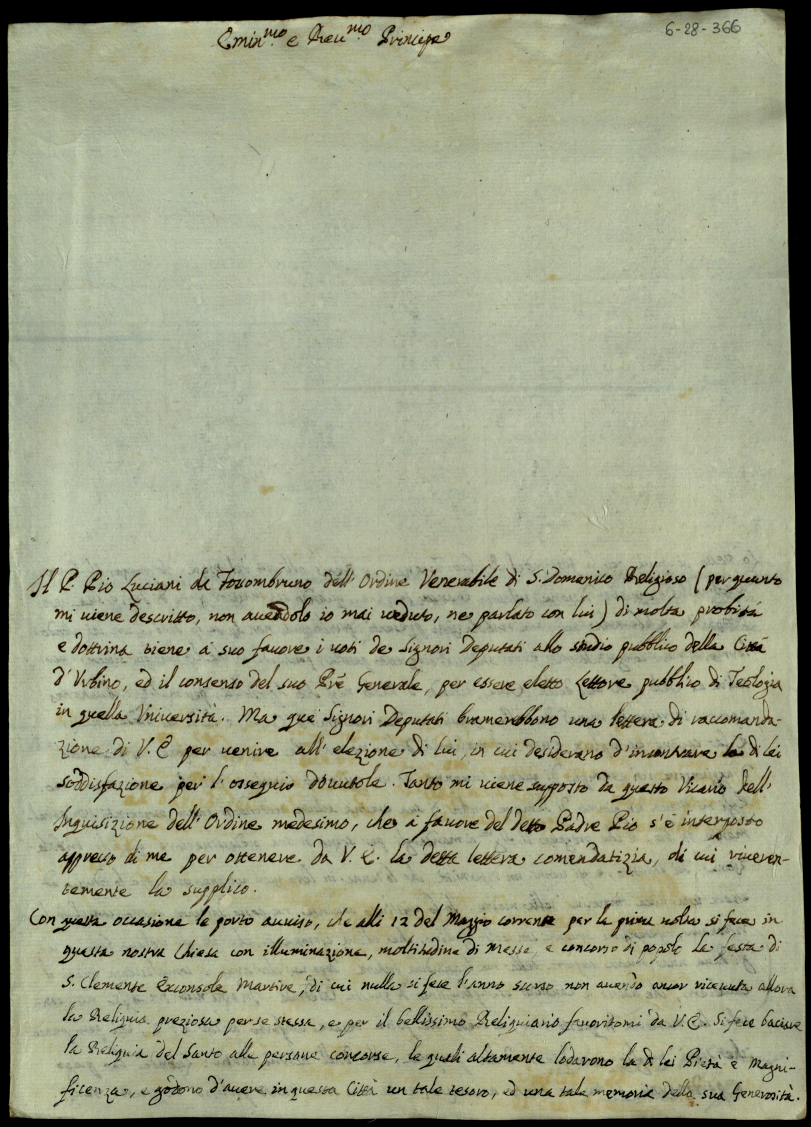 6-28-366
Emin.mo e Reu.mo Principe
Il P. Pio Luciani da Fossombruno dell' Ordine Venerabile di S. Domenico Religioso (per quanto
mi uiene descritto, non auendolo io mai ueduto, ne parlato con lui) di molta probità
e dottrina tiene à suo fauore i uoti de Signori Deputati allo studio pubblico della Città
d'Vrbino, ed il consenso del suo Pre Generale, per essere eletto Lettore pubblico di Teologia
in quella Vniuersità. Ma que' Signori Deputati bramerebbono una lettera di raccomanda-
zione di V. E per uenire all' elezione di lui, in cui desiderano d'incontrare la di lei
soddisfazione per l'ossequio douutole. Tanto mi uiene supposto da questo Vicario dell'
Inquisizione dell' Ordine medesimo, che à fauore del detto Padre Pio s'è interposto
appresso di me per ottenere da V. E. la detta lettera comendatizia, di cui riueren-
temente la supplico.
Con questa occasione le porto auuiso, che alli 12 del Maggio corrente per la prima uolta si fece in
questa nostra Chiesa con illuminazione, moltitudine di Messe, e concorso di popolo la festa di
S. Clemente Exconsole Martire, di cui nulla si fece l'anno scorso non auendo ancor riceuuta allora
la Reliquia preziosa per se stessa, e per il bellissimo Reliquiario fauoritomi da V. E. Si fece baciare
la Reliquia del Santo alle persone concorse, le quali altamente lodarono la di lei Pietà e Magni-
ficenza, e godono d'auere in questa Città un tale tesoro, ed una tale memoria della sua Generosità.